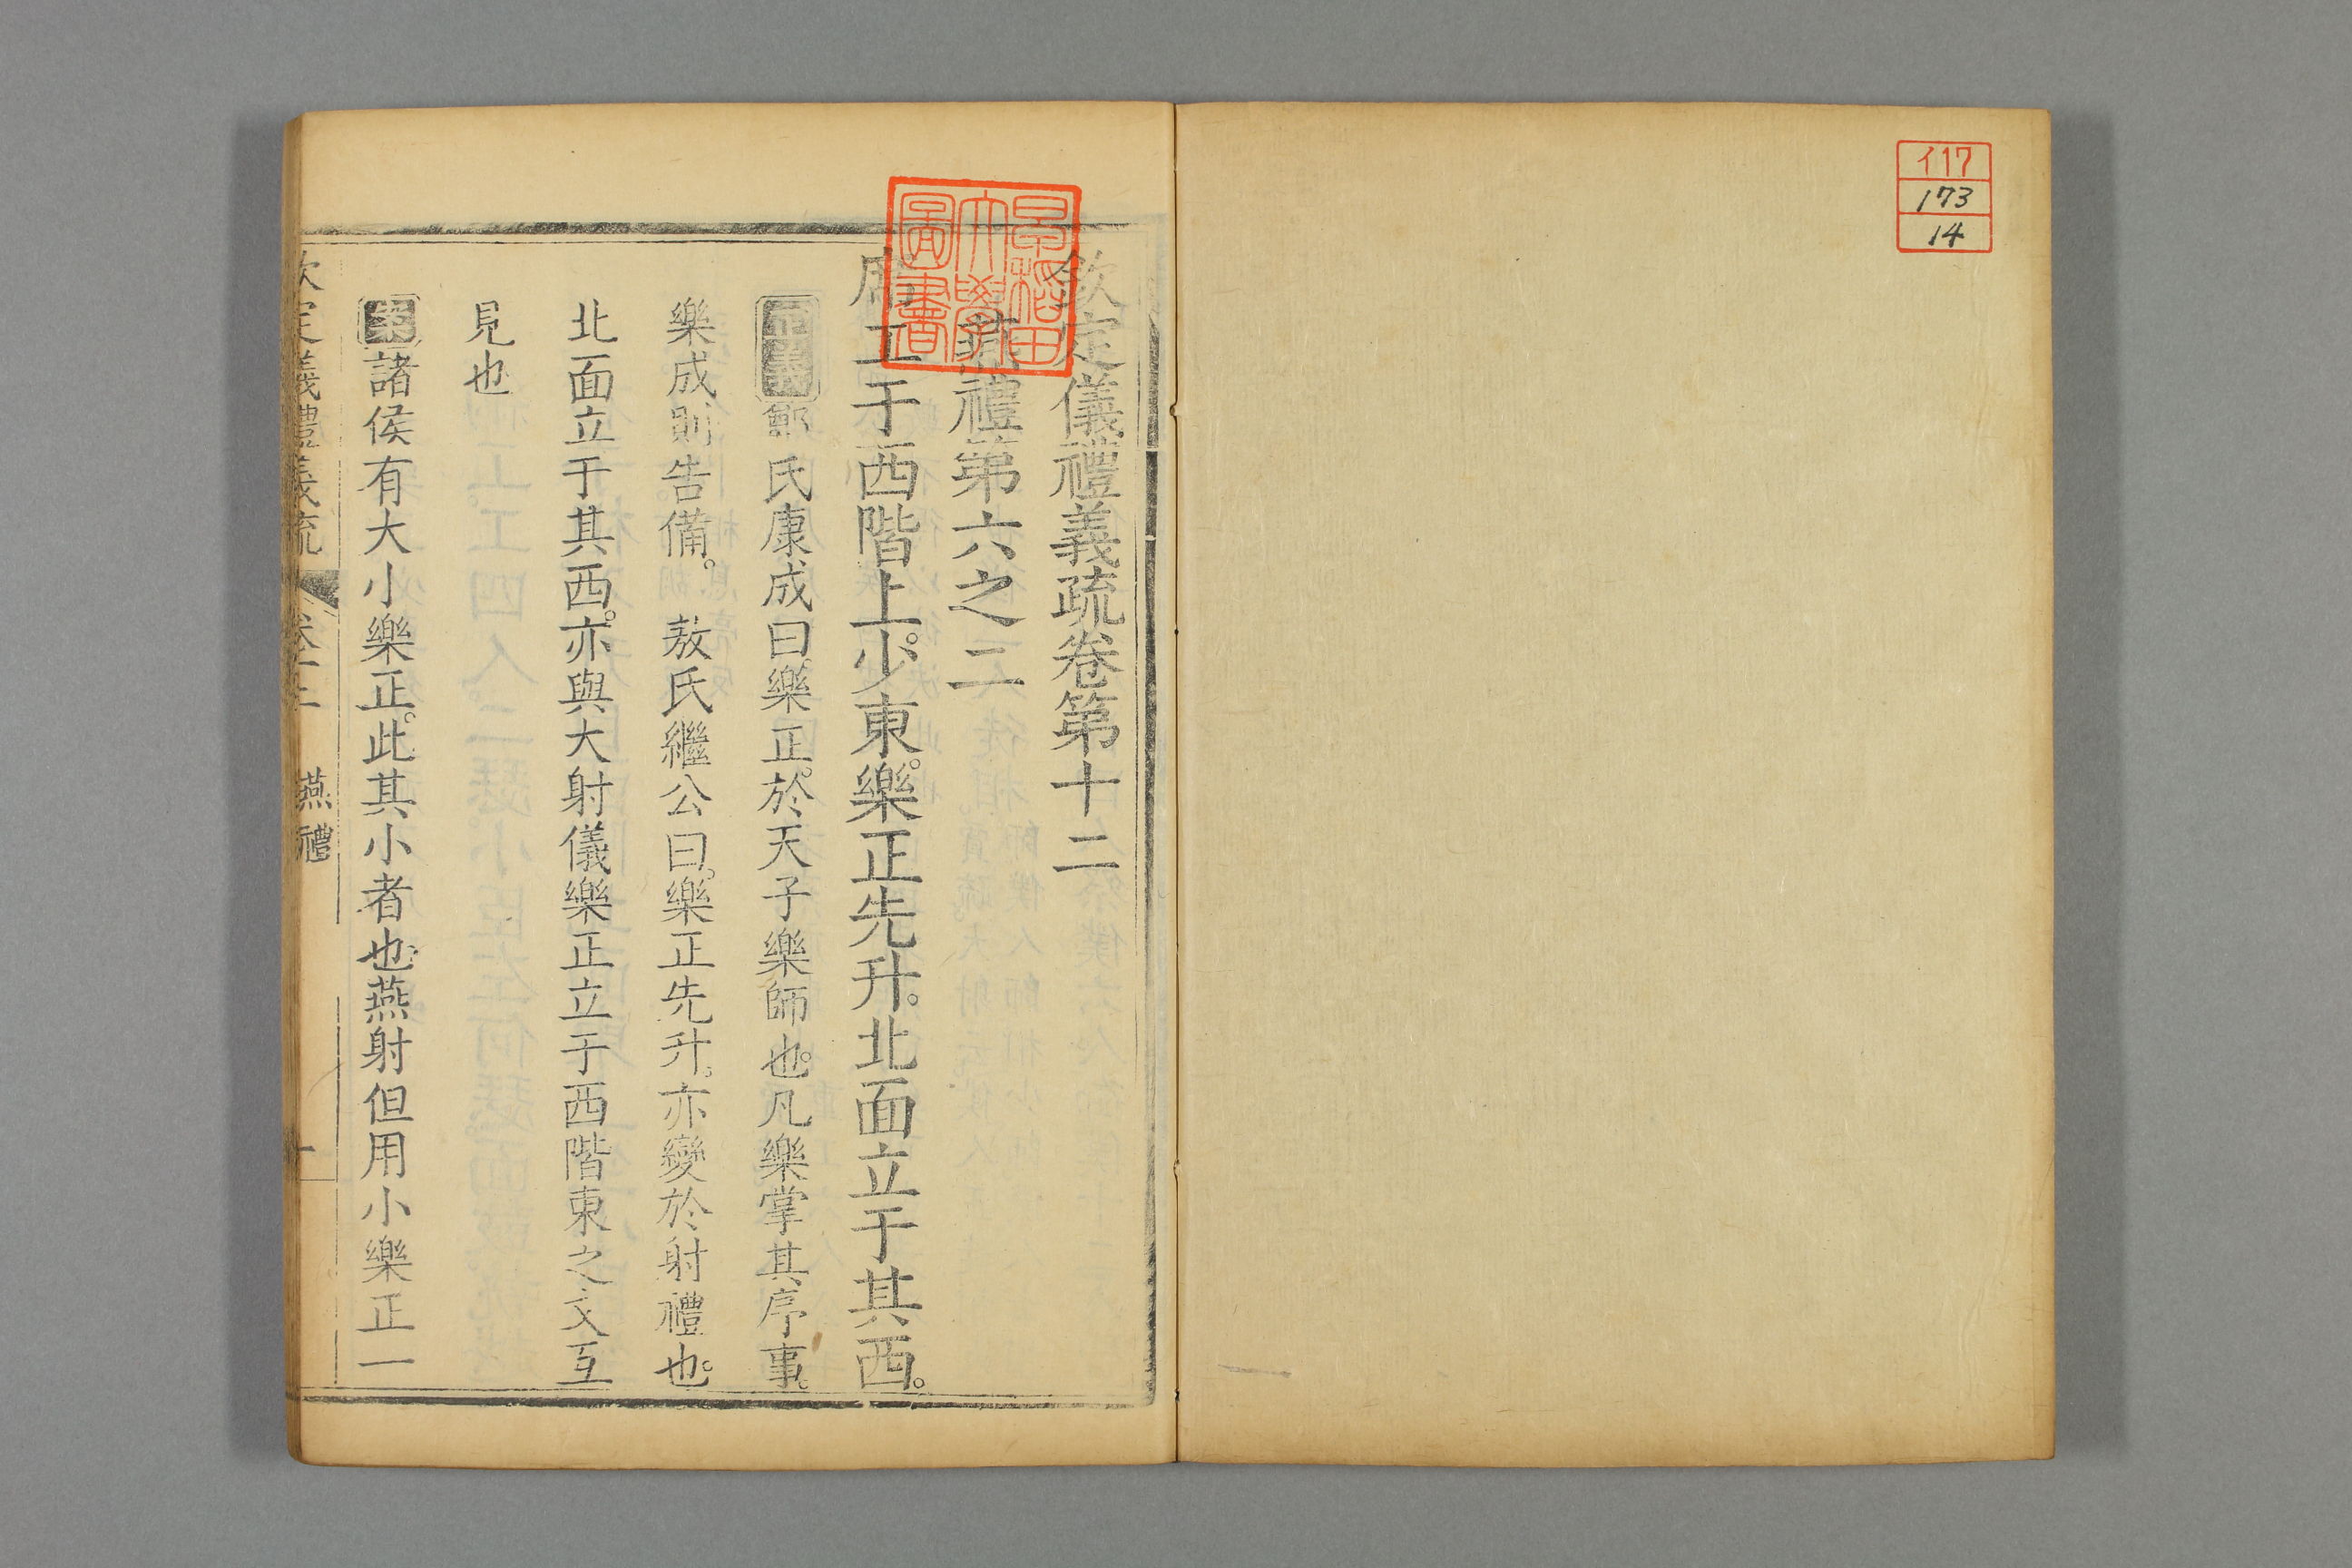 イ17
173
14
早稲田大學圖書
欽定儀禮義疏卷第十二
燕禮第六之二
席工于西階上少東。樂正先升。北面立于其西。
正義鄭氏康成曰樂正。於天子樂師也。凡樂掌其序事。
樂成則告備。 敖氏繼公曰。樂正先升。亦變於射禮也。
北面立于其西。亦與大射儀樂正立于西階東之文互
見也
案諸侯有大小樂正。此其小者也。燕射但用小樂正一
欽定儀禮義疏 卷十二 燕禮 一